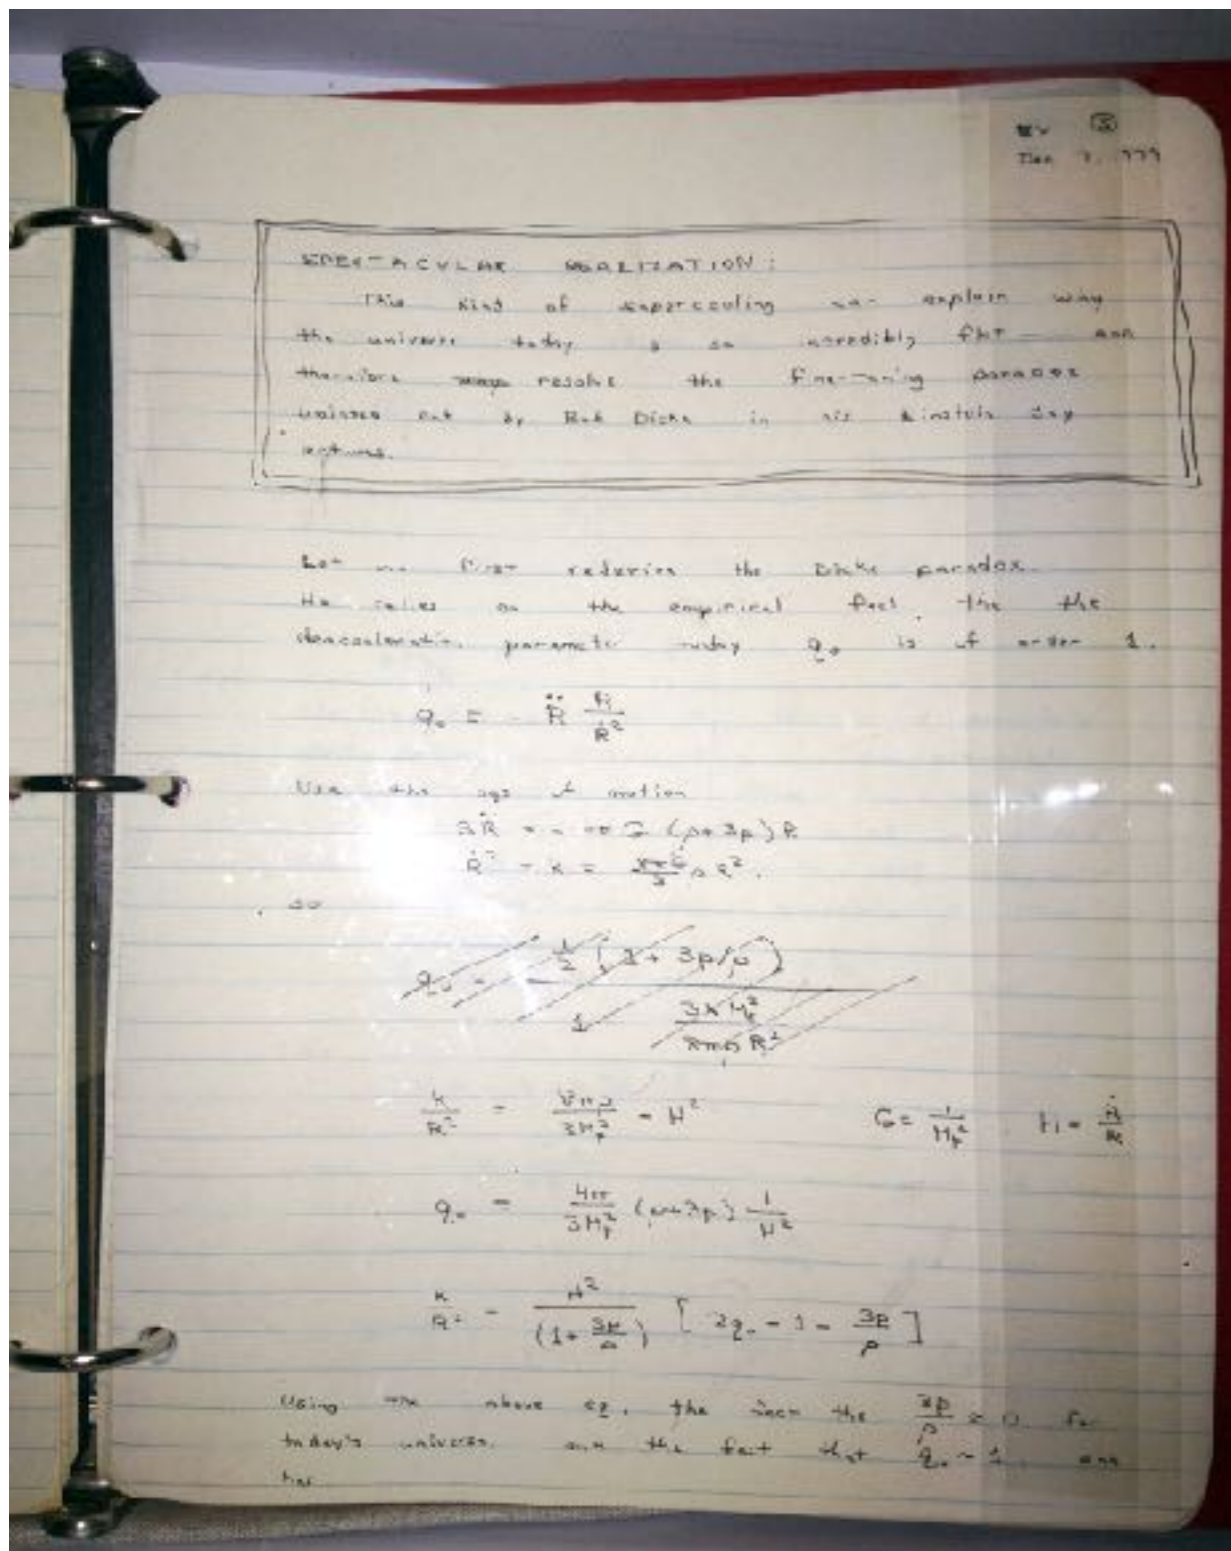 EV ⑤
Dec 7, 1979
SPECTACULAR REALIZATION:
This kind of supercooling can explain why
the universe today is so incredibly flat — and
therefore resolve the fine-tuning paradox
pointed out by Bob Dicke in his Einstein day
lectures.
Let me first rederive the Dicke paradox.
He relies on the empirical fact the the
deacceleration parameter today q₀ is of order 1.
q₀ = - R̈ R/Ṙ²
Use the eqs of motion
3R̈ = - 4π G (ρ+3p) R
Ṙ² + k = 8πG/3 ρ R².
so
k/R² = 8πρ/3Mₚ² - H² G = 1/Mₚ² H = Ṙ/R
q₀ = 4π/3Mₚ² (ρ+3p) 1/H²
k/R² = H²/(1+3p/ρ) [2q₀ - 1 - 3p/ρ]
Using the above eq, the fact the 3p/ρ ≈ 0 for
today's universe, and the fact that q₀ ~ 1, one
has